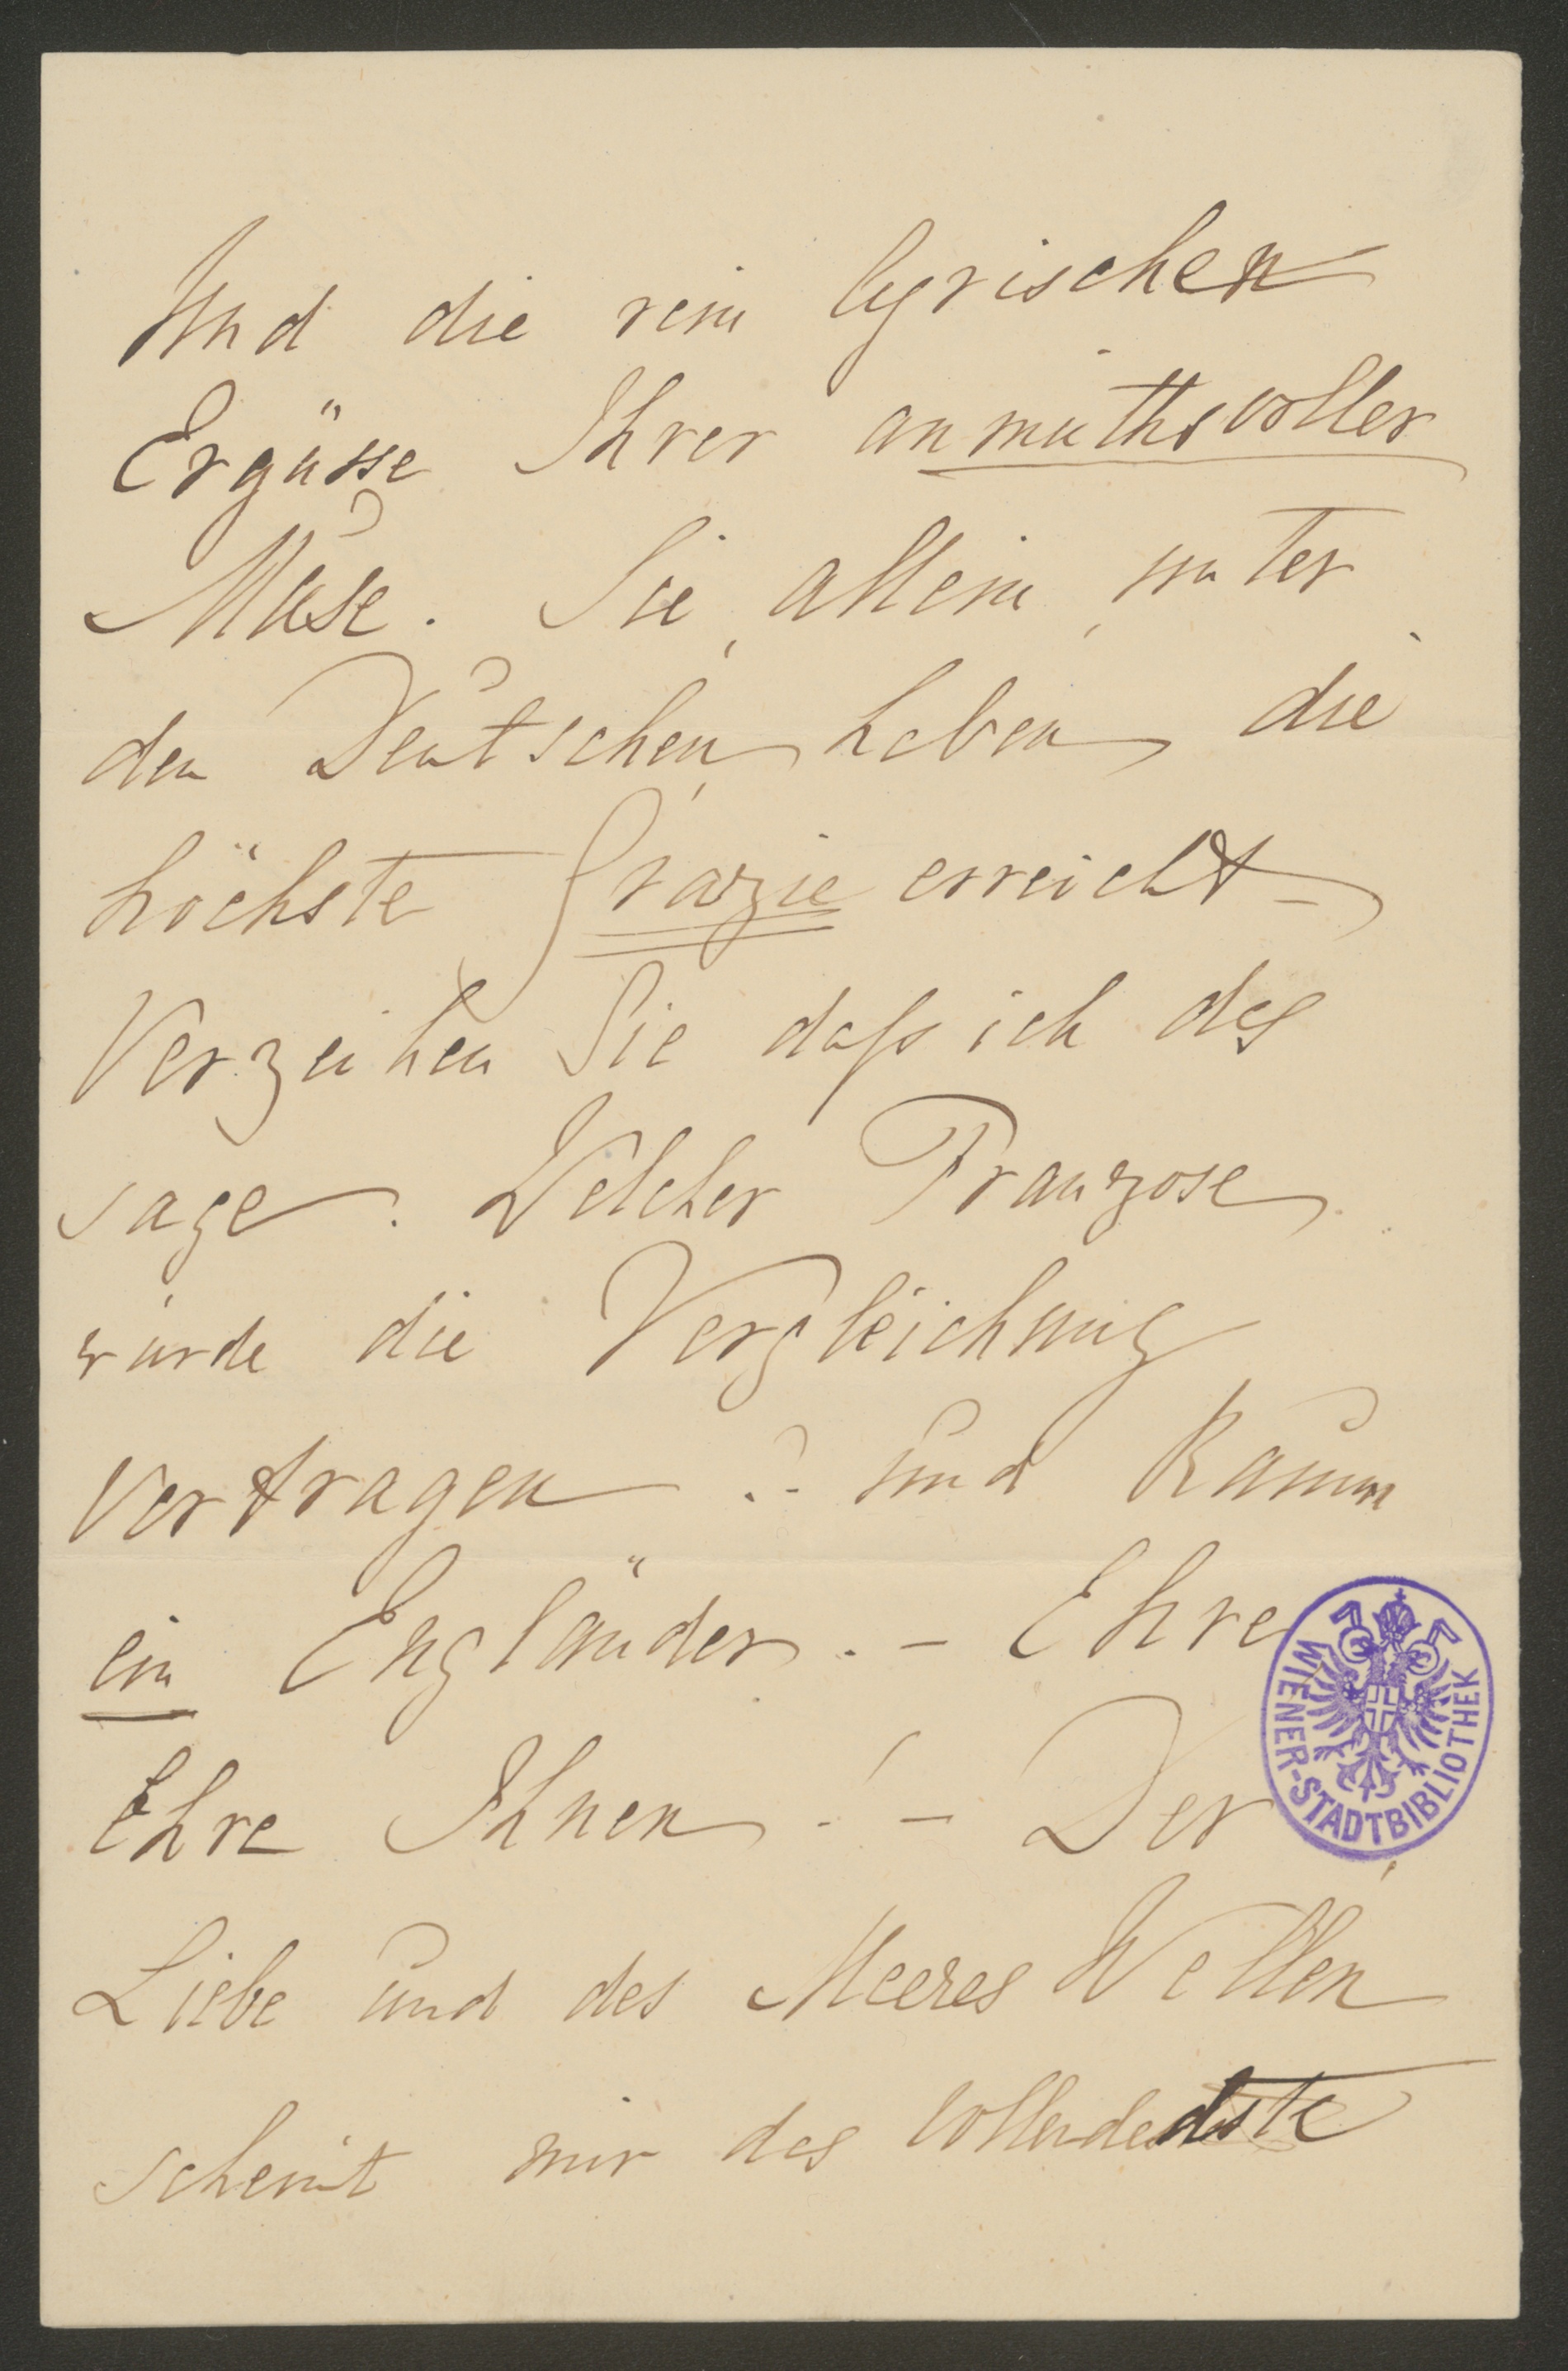 Und die rein lyrischen
Ergüsse Ihrer anmuthsvoller
Muse. Sie, allein, unter
den Deutschen, haben die
höchste Grazie erreicht –
Verzeihen Sie daß ich das
sage. Welcher Franzose
würde die Vergleichung
vertragen? und kaum
ein Engländer. – Ehre
Ehre Ihnen! – Der
Liebe und des Meeres Wellen
scheint mir das vollendedste
WIENER-STADTBIBLIOTHEK